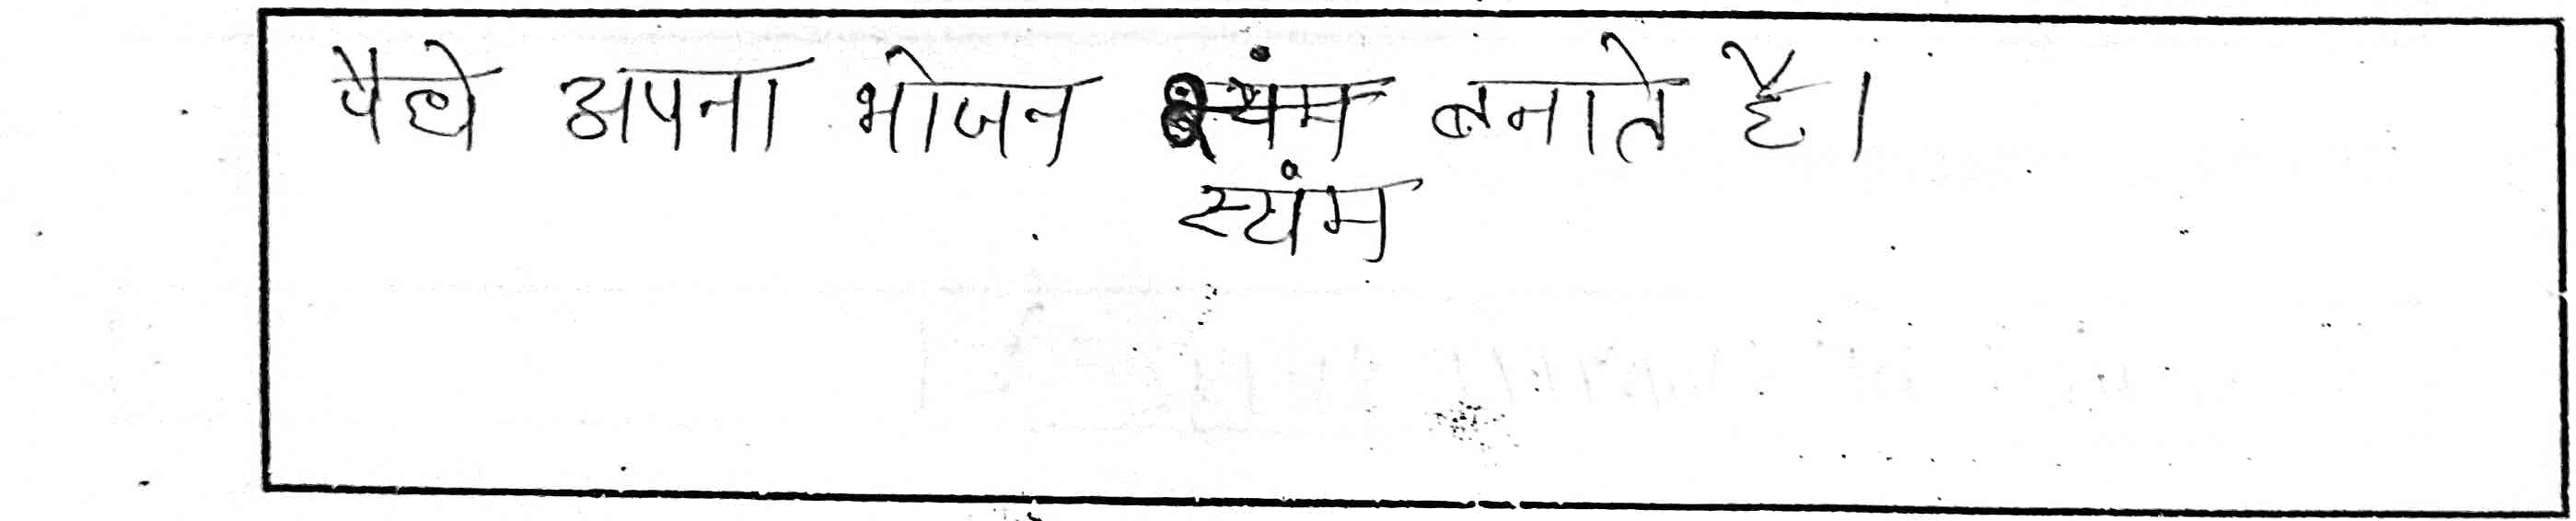 पैधे अपना भोजन स्यंम बनाते है।
स्यंम